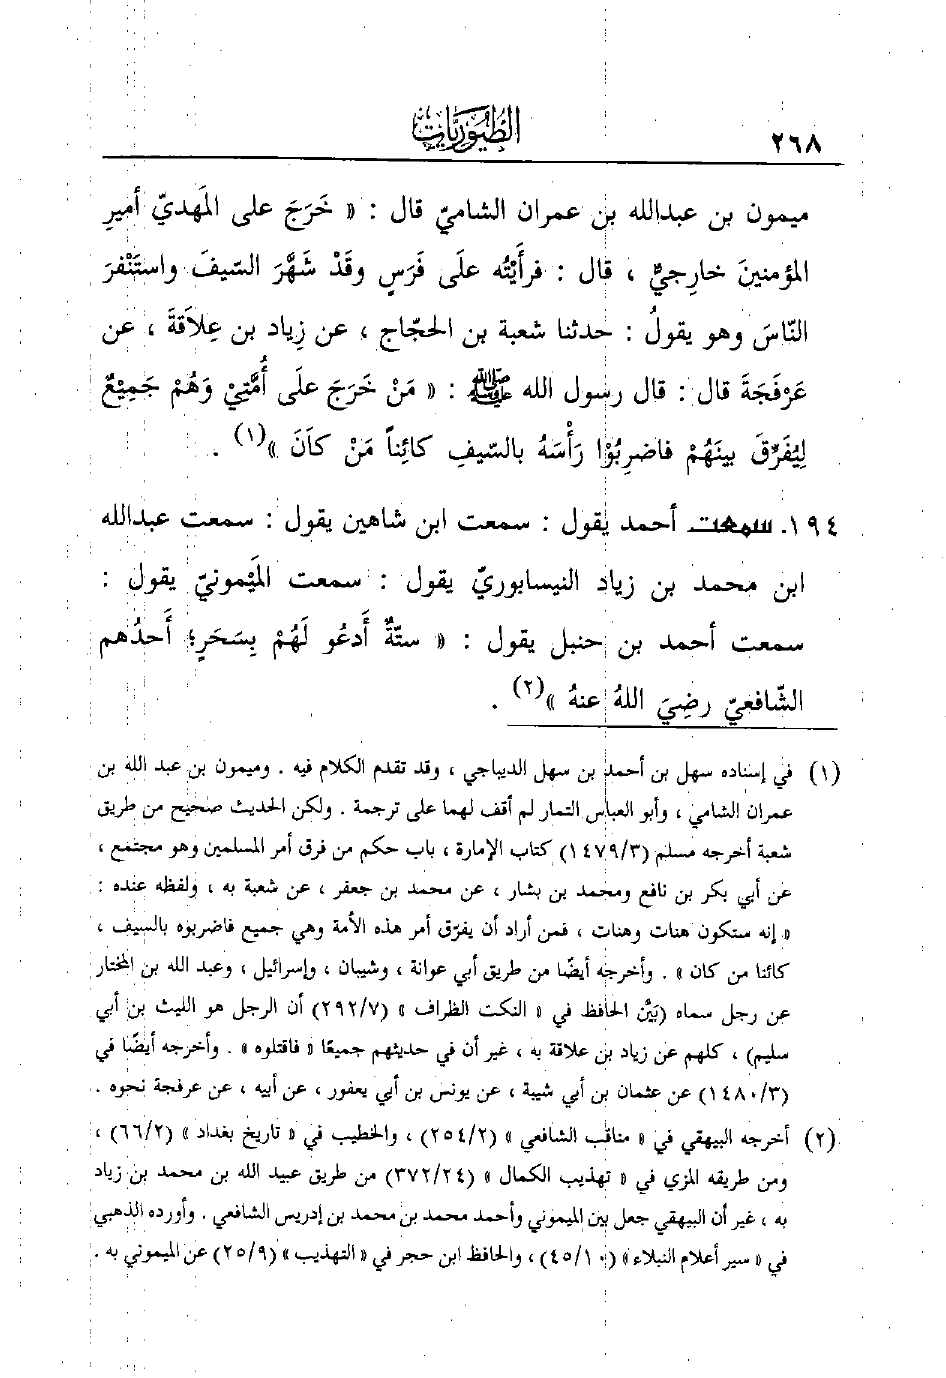 ٢٦٨
الطيوريات
ميمون بن عبدالله بن عمران الشاميّ قال : « خَرَجَ على المَهديّ أميرِ
المؤمنينَ خارِجيٌّ ، قال : فرأَيْتُه علَى فَرَسٍ وقَدْ شَهَّرَ السّيفَ واستَنْفرَ
النّاسَ وهو يقولُ : حدثنا شعبة بن الحجّاج ، عن زِياد بن عِلاَقةَ ، عن
عَرْفَجَةَ قال : قال رسول الله ﷺ : « مَنْ خَرَجَ علَى أُمَّتِيْ وَهُمْ جَمِيْعٌ
لِيُفَرِّقَ بينَهُمْ فاضرِبُوْا رَأْسَهُ بالسّيفِ كائِناً مَنْ كاَنَ »(١) .
١٩٤. سمعت أحمد يقول : سمعت ابن شاهين يقول : سمعت عبدالله
ابن محمد بن زياد النيسابوريّ يقول : سمعت المَيْمونيّ يقول :
سمعت أحمد بن حنبل يقول : « ستّةٌ أَدعُو لَهُمْ بِسَحَرٍ؛ أَحدُهم
الشّافعيّ رضِيَ اللهُ عنهُ »(٢) .
(١) في إسناده سهل بن أحمد بن سهل الديباجي ، وقد تقدم الكلام فيه . وميمون بن عبد الله بن
عمران الشامي ، وأبو العباس التمار لم أقف لهما على ترجمة . ولكن الحديث صحيح من طريق
شعبة أخرجه مسلم (١٤٧٩/٣) كتاب الإمارة ، باب حكم من فرق أمر المسلمين وهو مجتمع ،
عن أبي بكر بن نافع ومحمد بن بشار ، عن محمد بن جعفر ، عن شعبة به ، ولفظه عنده :
« إنه ستكون هنات وهنات ، فمن أراد أن يفرّق أمر هذه الأمة وهي جميع فاضربوه بالسيف ،
كائنا من كان » . وأخرجه أيضًا من طريق أبي عوانة ، وشيبان ، وإسرائيل ، وعبد الله بن المختار
عن رجل سماه (بَيَّن الحافظ في « النكت الظراف » (٢٩٢/٧) أن الرجل هو الليث بن أبي
سليم) ، كلهم عن زياد بن علاقة به ، غير أن في حديثهم جميعًا « فاقتلوه » . وأخرجه أيضًا في
(١٤٨٠/٣) عن عثمان بن أبي شيبة ، عن يونس بن أبي يعفور ، عن أبيه ، عن عرفجة نحوه .
(٢) أخرجه البيهقي في « مناقب الشافعي » (٢٥٤/٢) ، والخطيب في « تاريخ بغداد » (٦٦/٢) ،
ومن طريقه المزي في « تهذيب الكمال » (٣٧٢/٢٤) من طريق عبيد الله بن محمد بن زياد
به ، غير أن البيهقي جعل بين الميموني وأحمد محمد بن محمد بن إدريس الشافعي . وأورده الذهبي
في « سير أعلام النبلاء » (٤٥/١٠) ، والحافظ ابن حجر في « التهذيب » (٢٥/٩) عن الميموني به .